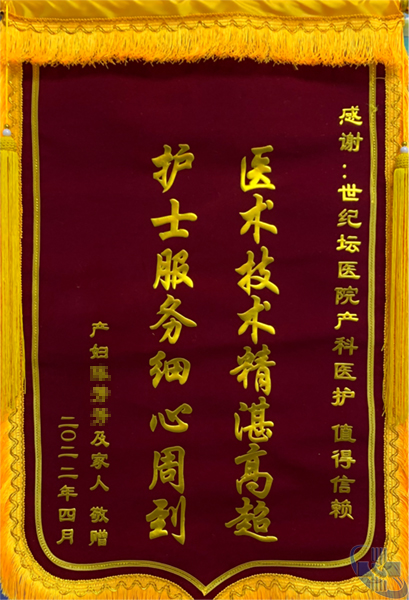 感谢：世纪坛医院产科医护 值得信赖
医术技术精湛高超
护士服务细心周到
产妇及家人 敬赠
二〇二二年四月